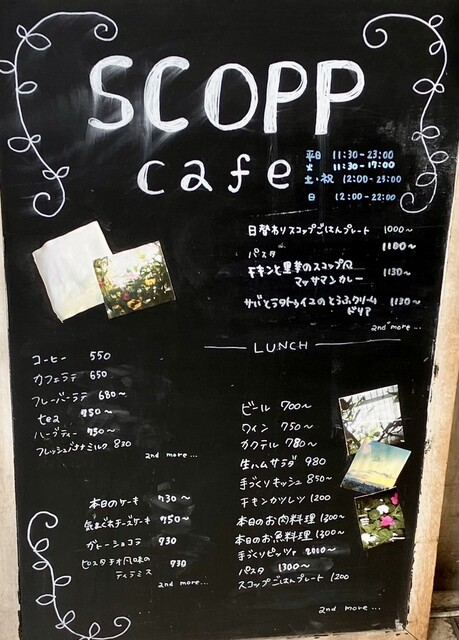 SCOPP
cafe
平日 11:30-23:00
火 11:30-17:00
土・祝 12:00-23:00
日 12:00-22:00
日替わりスコップごはんプレート 1000〜
パスタ 1100〜
チキンと里芋のスコップ風
マッサマンカレー 1130〜
サバとラタトゥイユのとうふクリーム
ドリア 1130〜
and more...
LUNCH
コーヒー 550
カフェラテ 650
フレーバーラテ 680〜
tea 750〜
ハーブティー 750〜
フレッシュバナナミルク 830
and more...
本日のケーキ 730〜
気まぐれチーズケーキ 750〜
ガトーショコラ 730
ピスタチオ風味の
ティラミス 730
and more...
ビール 700〜
ワイン 750〜
カクテル 780〜
生ハムサラダ 980
手づくりキッシュ 850〜
チキンカツレツ 1200
本日のお肉料理 1300〜
本日のお魚料理 1300〜
手づくりピッツァ 2000〜
パスタ 1300〜
スコップごはんプレート 1200
and more...